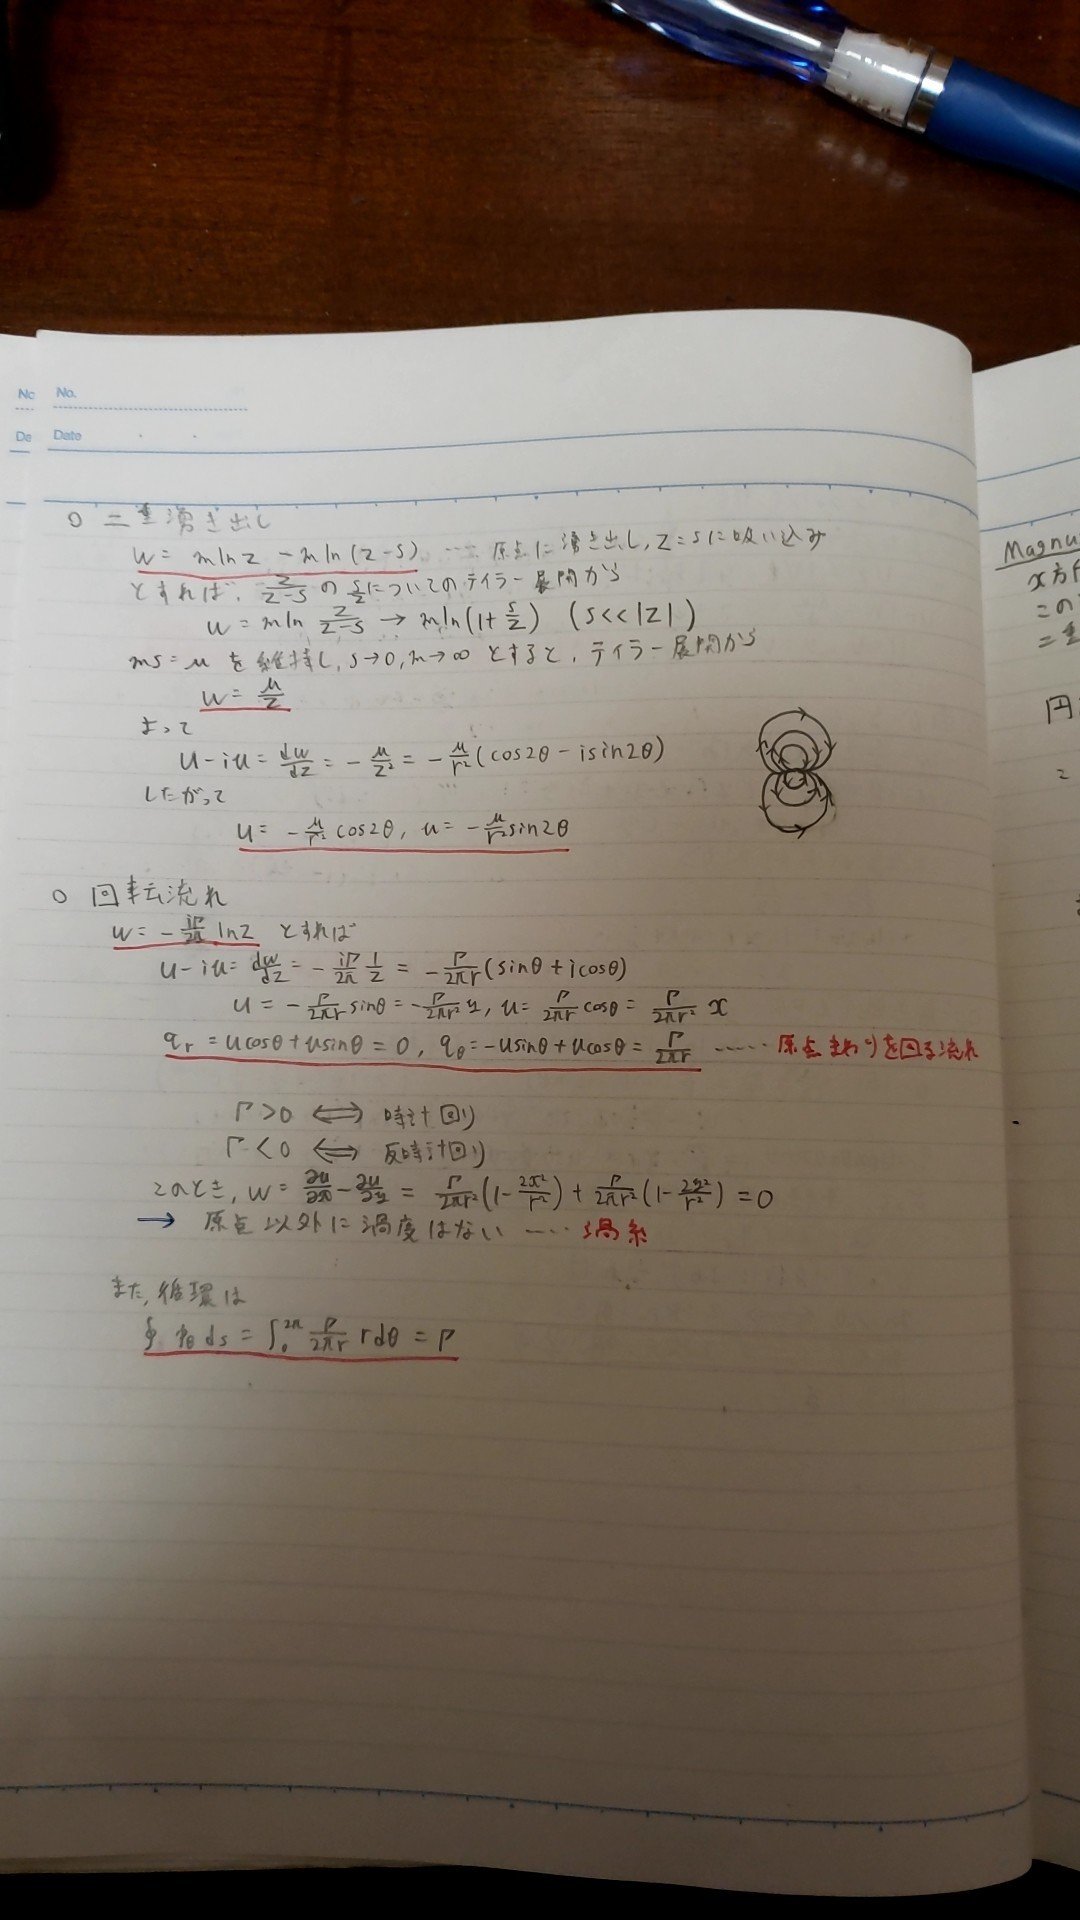 No.
No.
Date
○ 二重湧き出し
W = m ln z - m ln (z-s) …… 原点に湧き出し, z=sに吸い込み
とすれば, z/(z-s) の s/z についてのテイラー展開から
w = m ln z/(z-s) → m ln(1+ s/z) (s<<|z|)
ms = μ を維持し, s→0, m→∞ とすると, テイラー展開から
w = μ/z
よって
u-iu = dw/dz = - μ/z² = - μ/r² (cos2θ - isin2θ)
したがって
u = - μ/r² cos2θ, u = - μ/r² sin2θ
○ 回転流れ
w = - iΓ/2π ln z とすれば
u-iu = dw/dz = - iΓ/2π 1/z = - Γ/2πr (sinθ + icosθ)
u = - Γ/2πr sinθ = - Γ/2πr² y, u = Γ/2πr cosθ = Γ/2πr² x
qr = ucosθ + usinθ = 0, qθ = -usinθ + ucosθ = Γ/2πr …… 原点まわりを回る流れ
Γ>0 ⟺ 時計回り
Γ<0 ⟺ 反時計回り
このとき, w = ∂u/∂x - ∂u/∂y = Γ/2πr² (1 - 2x²/r²) + Γ/2πr² (1 - 2y²/r²) = 0
→ 原点以外に渦度はない …… 渦糸
また, 循環は
∮ qθ ds = ∫₀²π Γ/2πr r dθ = Γ
Magnu
x方向
この
円